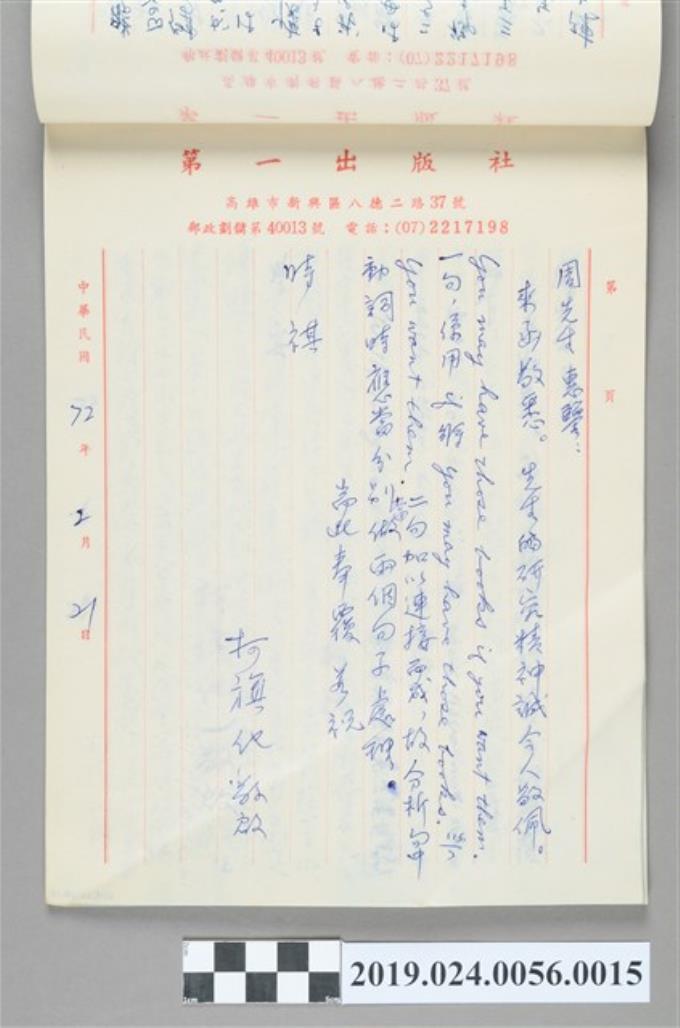 第一出版社
高雄市新興區八德二路37號
郵政劃儲第40013號 電話：(07)2217198
第 頁
周先生惠鑒：
來函敬悉。先生的研究精神誠令人敬佩。
You may have those books if you want them.
一句，係用 if 將 you may have those books. 與
you want them. 二句加以連接而成，故分析句中
動詞時應當分別當做兩個句子處理。
耑此奉覆 並祝
時祺
柯旗化敬啟
中華民國 72 年 2 月 21 日
2019.024.0056.0015